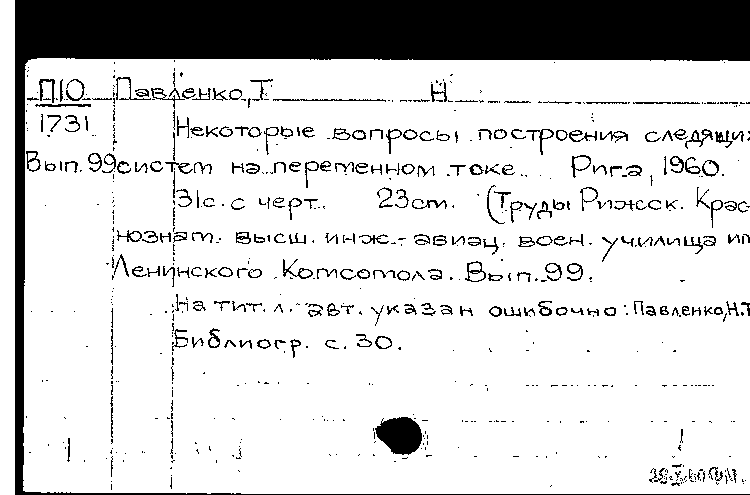 П10 Павленко, Т Н
1731 Некоторые вопросы построения следящих
Вып. 99 систем на переменном токе. Рига, 1960.
31с. с черт. 23см. (Труды Рижск. Крас-
нознам. высш. инж.-авиац. воен. училища им
Ленинского Комсомола. Вып. 99.
На тит. л. авт. указан ошибочно: Павленко, Н.Т
Библиогр. с. 30.